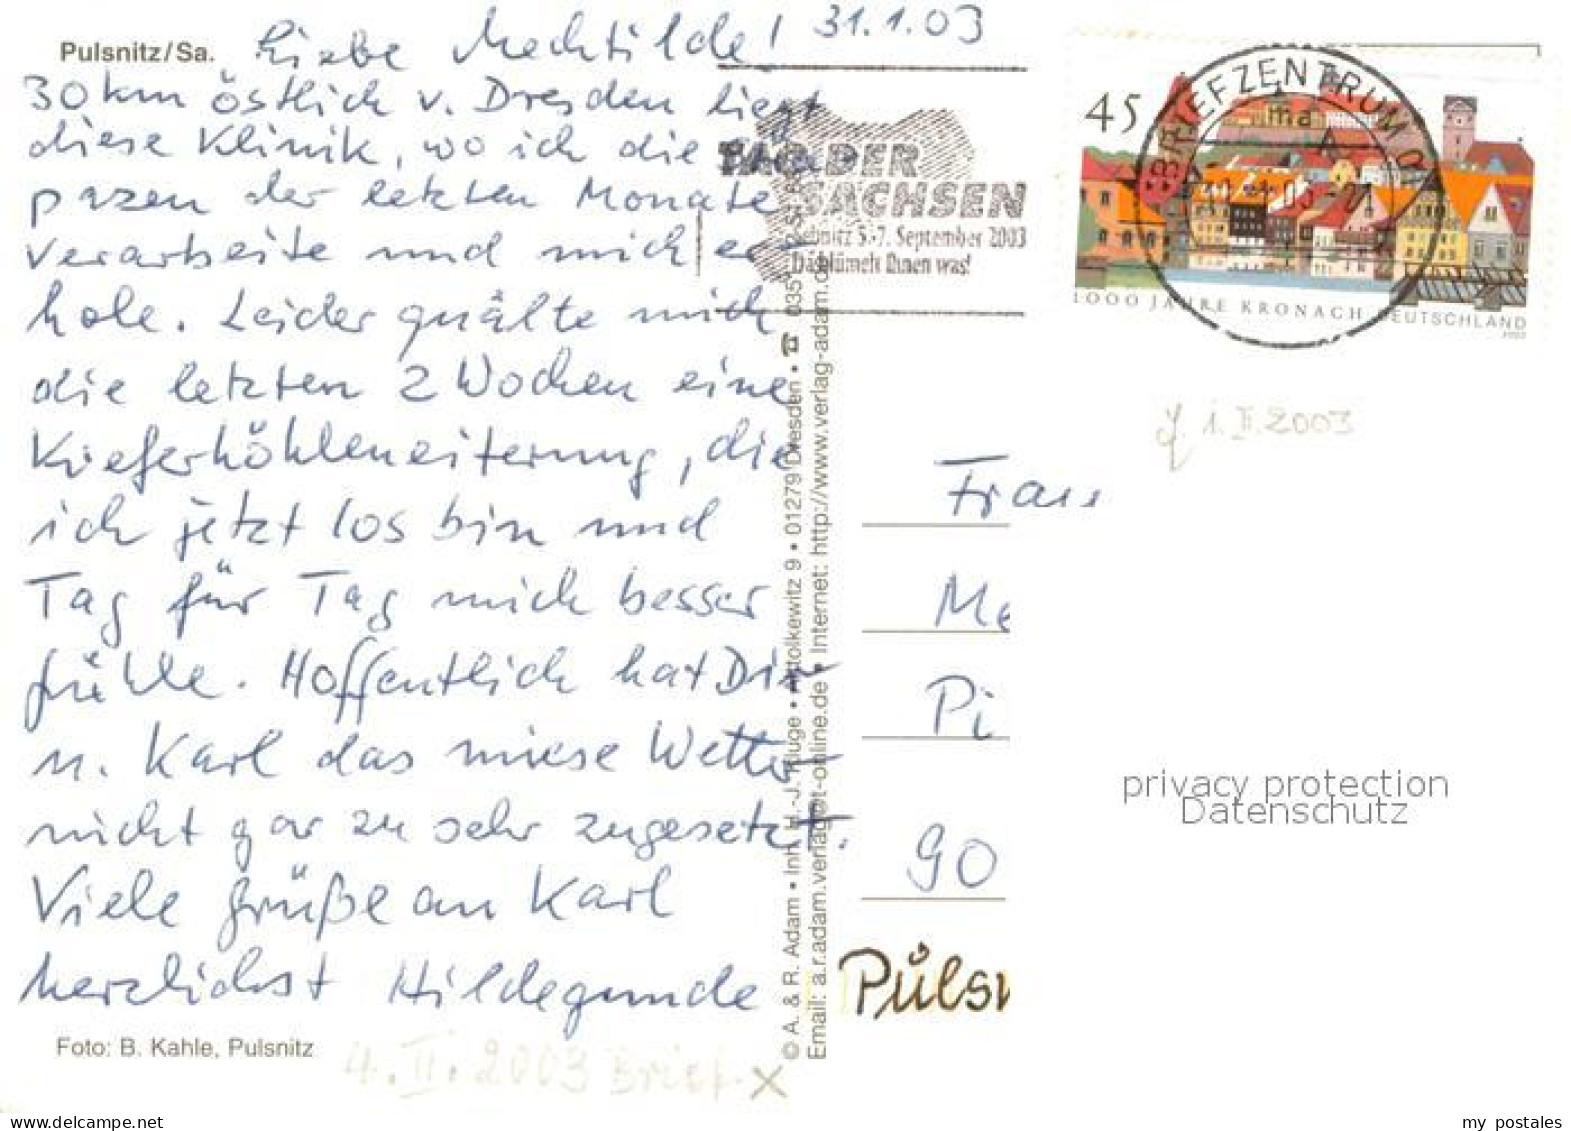 Pulsnitz/Sa.
Liebe Mechtilde! 31.1.03
30 km östlich v. Dresden liegt
diese Klinik, wo ich die
pazen der letzten Monate
verarbeite und mich er
hole. Leider quälte mich
die letzten 2 Wochen eine
Kieferhöhleneiterung, die
ich jetzt los bin und
Tag für Tag mich besser
fühle. Hoffentlich hat Dir
u. Karl das miese Wetter
nicht gar zu sehr zugesetzt.
Viele Grüße an Karl
herzlichst Hildegunde
Foto: B. Kahle, Pulsnitz
4.II.2003 Brief
© A. & R. Adam • Inh. H.-J. Kluge • Altolkewitz 9 • 01279 Dresden • ☎ 035
Email: a.r.adam.verlag@t-online.de • Internet: http://www.verlag-adam.de
TAG DER
SACHSEN
ebnitz 5.-7. September 2003
Da blüm't Ihnen was!
BRIEFZENTRUM 0
45
1000 JAHRE KRONACH
DEUTSCHLAND
1.II.2003
Frau
Me
Pi
90
Pulsn
privacy protection
Datenschutz
www.delcampe.net
my_postales